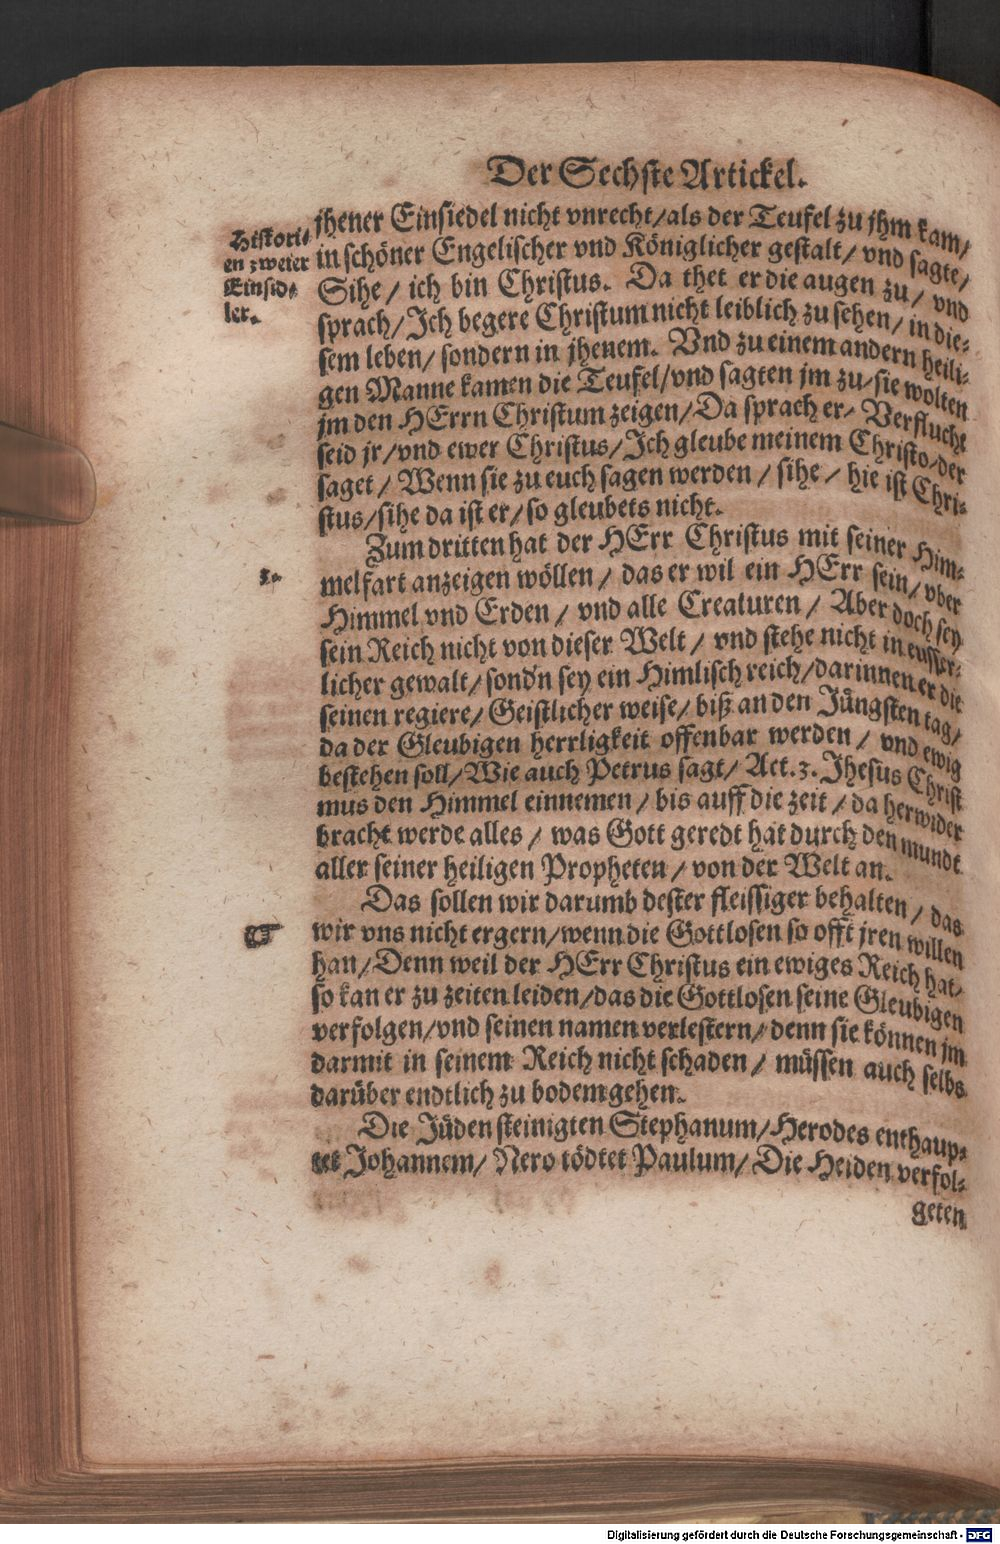 Der Sechste Artickel.
Histori-
en zweier
Einsid-
ler.
jhener Einsiedel nicht vnrecht/als der Teufel zu jhm kam/
in schöner Engelischer vnd Königlicher gestalt/ vnd sagte/
Sihe/ ich bin Christus. Da thet er die augen zu/ vnd
sprach/Ich begere Christum nicht leiblich zu sehen/ in die-
sem leben/ sondern in jhenem. Vnd zu einem andern heili-
gen Manne kamen die Teufel/vnd sagten jm zu/sie wolten
jm den HErrn Christum zeigen/Da sprach er/ Verflucht
seid jr/vnd ewer Christus/Ich gleube meinem Christo/der
saget/ Wenn sie zu euch sagen werden/ sihe/ hie ist Chri-
stus/sihe da ist er/so gleubets nicht.
3.
Zum dritten hat der HErr Christus mit seiner Him-
melfart anzeigen wöllen/ das er wil ein HErr sein/ vber
Himmel vnd Erden/ vnd alle Creaturen/ Aber doch sey
sein Reich nicht von dieser Welt/ vnd stehe nicht in eusser-
licher gewalt/ sond'n sey ein Himlisch reich/darinnen er die
seinen regiere/ Geistlicher weise/ biß an den Jüngsten tag/
da der Gleubigen herrligkeit offenbar werden/ vnd ewig
bestehen soll/Wie auch Petrus sagt/ Act.3. Jhesus Christ
mus den Himmel einnemen/ bis auff die zeit/ da herwider
bracht werde alles/ was Gott geredt hat durch den mundt
aller seiner heiligen Propheten/ von der Welt an.
Das sollen wir darumb dester fleissiger behalten/ das
☞ wir vns nicht ergern/wenn die Gottlosen so offt jren willen
han/Denn weil der HErr Christus ein ewiges Reich hat/
so kan er zu zeiten leiden/das die Gottlosen seine Gleubigen
verfolgen/vnd seinen namen verlestern/ denn sie können jm
darmit in seinem Reich nicht schaden/ müssen auch selbs
darüber endtlich zu bodem gehen.
Die Jüden steinigten Stephanum/Herodes enthaup-
tet Johannem/ Nero tödtet Paulum/ Die Heiden verfol-
geten
Digitalisierung gefördert durch die Deutsche Forschungsgemeinschaft - DFG